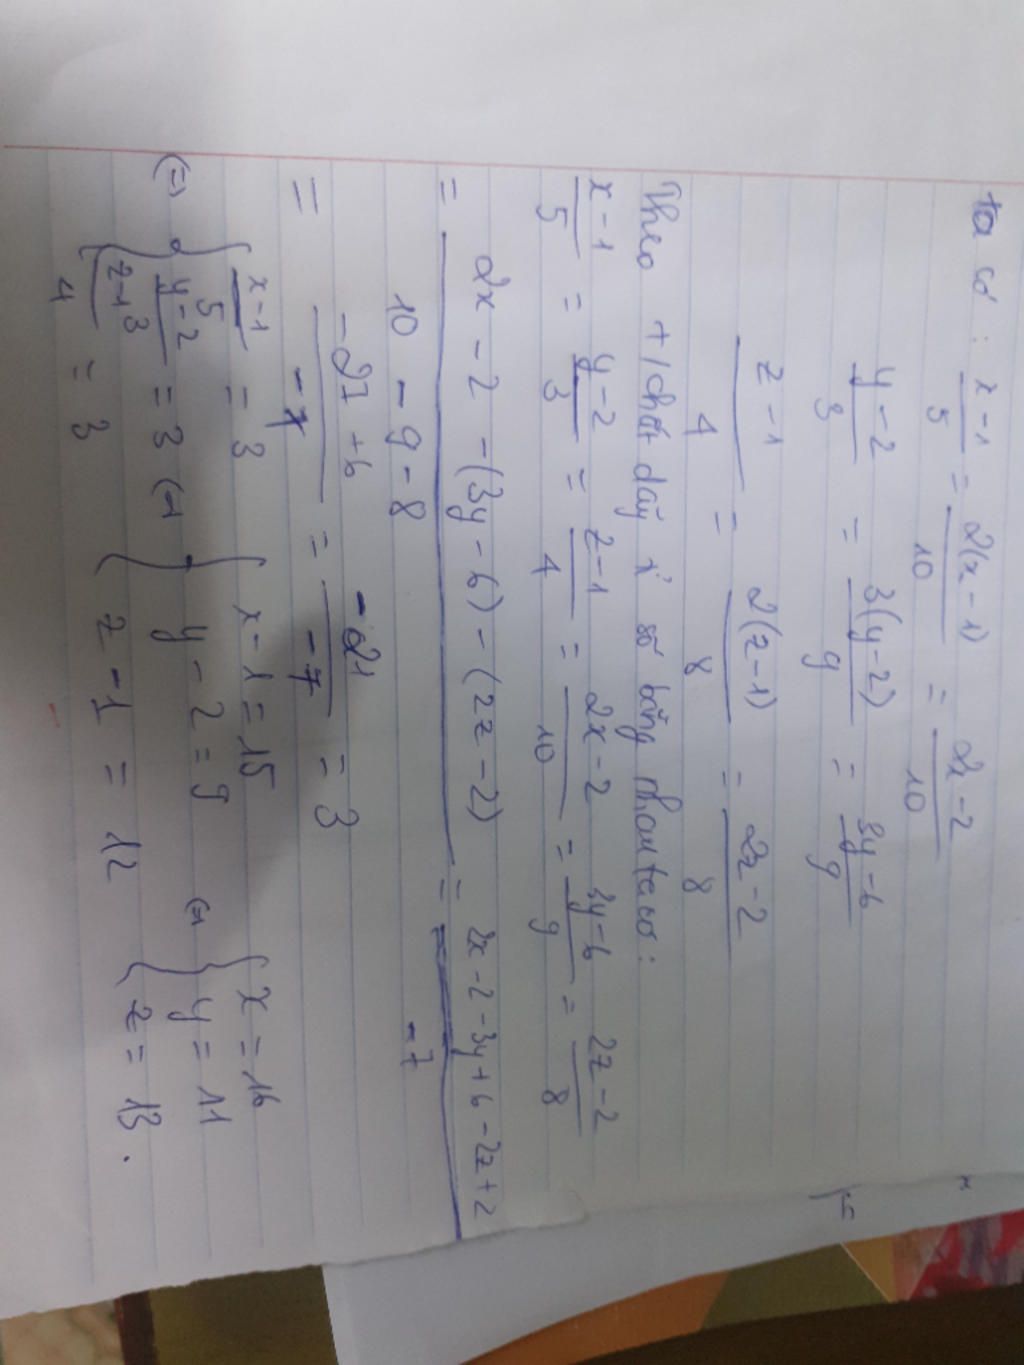 ta có : x-1/5 = 2(x-1)/10 = 2x-2/10
y-2/3 = 3(y-2)/9 = 3y-6/9
z-1/4 = 2(z-1)/8 = 2z-2/8
Theo t/chất dãy số bằng nhau ta có :
x-1/5 = y-2/3 = z-1/4 = 2x-2/10 = 3y-6/9 = 2z-2/8
= 2x-2-(3y-6)-(2z-2)/10-9-8 = 2x-2-3y+6-2z+2/-7
= -27+6/-7 = -21/-7 = 3
(=) { x-1/5 = 3 y-2/3 = 3 z-1/4 = 3 (=) { x-1=15 y-2=9 z-1=12 (=) { x=16 y=11 z=13.